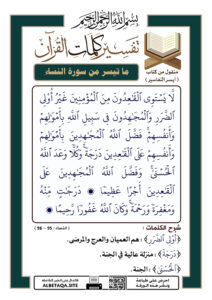 بسم الله الرحمن الرحيم
تفسير كلمات القرآن
ما تيسر من سورة النساء
منقول من كتاب
( أيسر التفاسير )
لَّا يَسْتَوِى الْقَٰعِدُونَ مِنَ الْمُؤْمِنِينَ غَيْرُ أُوْلِى
الضَّرَرِ وَالْمُجَٰهِدُونَ فِى سَبِيلِ اللَّهِ بِأَمْوَٰلِهِمْ
وَأَنفُسِهِمْ فَضَّلَ اللَّهُ الْمُجَٰهِدِينَ بِأَمْوَٰلِهِمْ
وَأَنفُسِهِمْ عَلَى الْقَٰعِدِينَ دَرَجَةً وَكُلًّا وَعَدَ اللَّهُ
الْحُسْنَىٰ وَفَضَّلَ اللَّهُ الْمُجَٰهِدِينَ عَلَى
الْقَٰعِدِينَ أَجْرًا عَظِيمًا ۞ دَرَجَٰتٍ مِّنْهُ
وَمَغْفِرَةً وَرَحْمَةً وَكَانَ اللَّهُ غَفُورًا رَّحِيمًا ۞
شرح الكلمات : ( النساء : 95 - 96 )
﴿أُوْلِى الضَّرَرِ﴾ : هم العميان والعرج والمرضى.
﴿دَرَجَةً﴾ : منزلة عالية في الجنة.
﴿الْحُسْنَىٰ﴾ : الجنة.
ALBETAQA.SITE